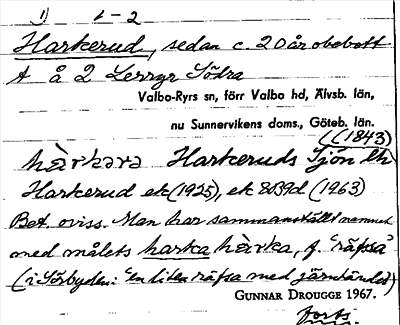 1) 2-2
Harkerud, sedan c. 20 år obebott
t å 2 Lerryr Södra
Valbo-Ryrs sn, förr Valbo hd, Älvsb. län,
nu Sunnervikens doms., Göteb. län.
((1843)
hàrkərə Harkeruds Sjön
Harkerud ek (1925), ek 8D39d (1963)
Bet. oviss. Man har sammanställt namnet
med målets harka hàrka, f. "räfsa"
(i Sörbygden: "en liten räfsa med järntänder)
GUNNAR DROUGGE 1967.
forts.